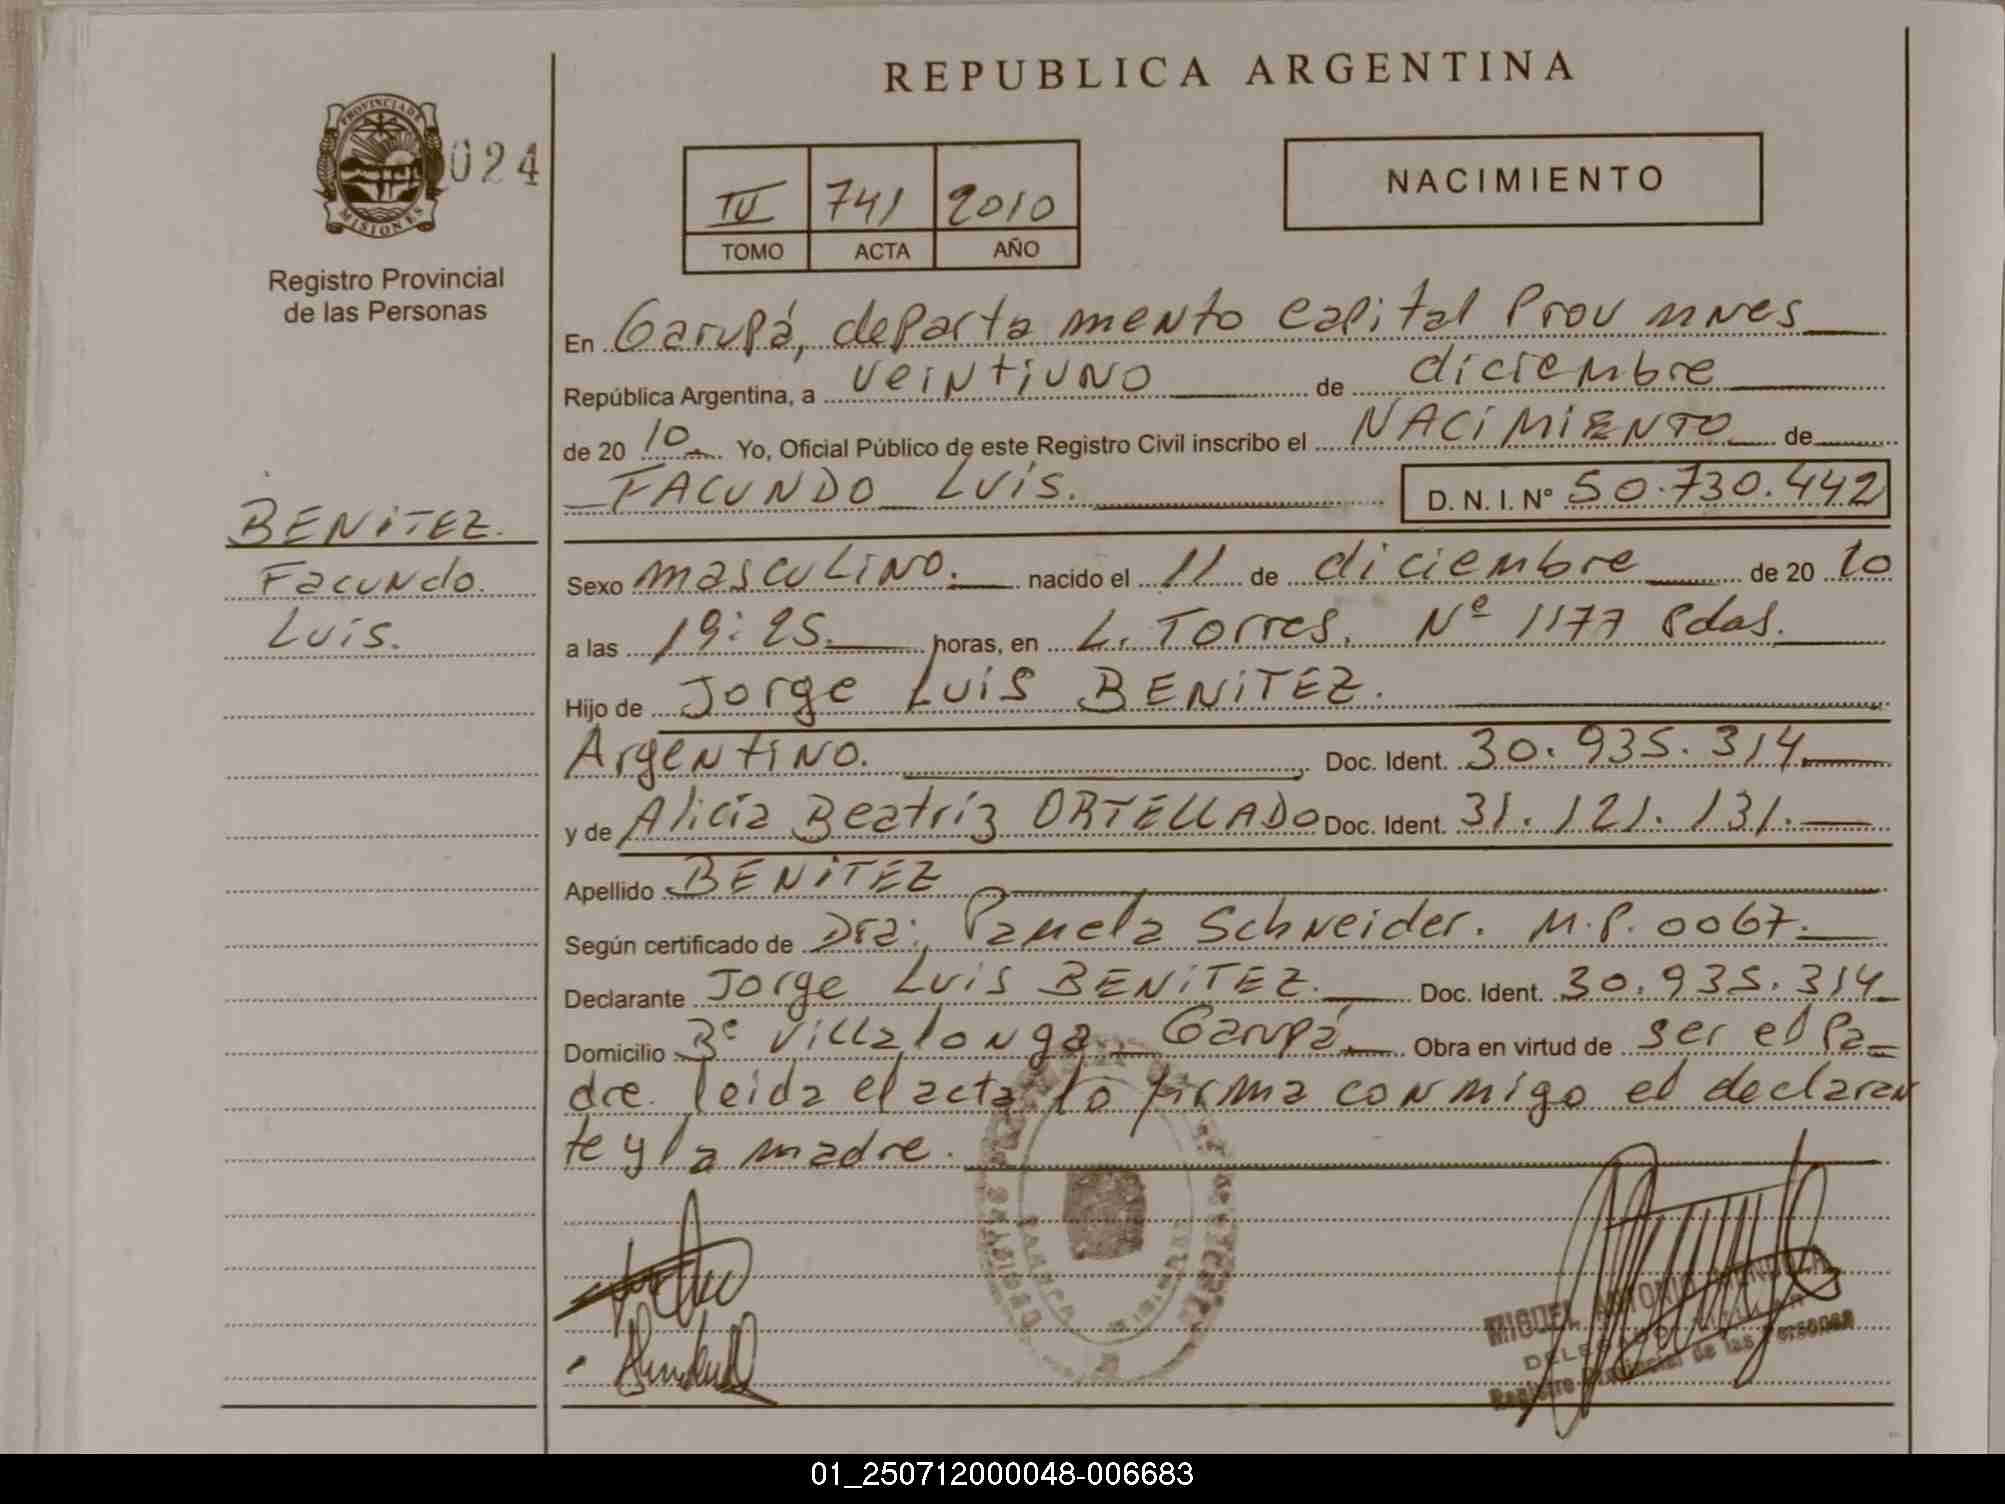 REPUBLICA ARGENTINA
PROVINCIA DE
MISIONES
024
Registro Provincial
de las Personas
IV 741 2010
TOMO ACTA AÑO
NACIMIENTO
En Garupá, departamento capital Prov mnes
República Argentina, a veintiuno de diciembre
de 20 10 Yo, Oficial Público de este Registro Civil inscribo el NACIMIENTO de
FACUNDO LUIS. D. N. I. Nº 50.730.442
BENITEZ.
Facundo.
Luis.
Sexo masculino. nacido el 11 de diciembre de 20 10
a las 19:25. horas, en L. Torres. Nº 1177 Pdas.
Hijo de Jorge Luis BENITEZ.
Argentino. Doc. Ident. 30.935.314
y de Alicia Beatriz ORTELLADO Doc. Ident. 31.121.131.
Apellido BENITEZ
Según certificado de Dra: Pamela Schneider. M.P. 0067.
Declarante Jorge Luis BENITEZ. Doc. Ident. 30.935.314
Domicilio Bº Villalonga Garupá Obra en virtud de ser el Pa-
dre. leida el acta lo firma conmigo el declaran
te y la madre.
MIGUEL ANTONIO MENDOZA
Registro Provincial de las Personas
01_250712000048-006683